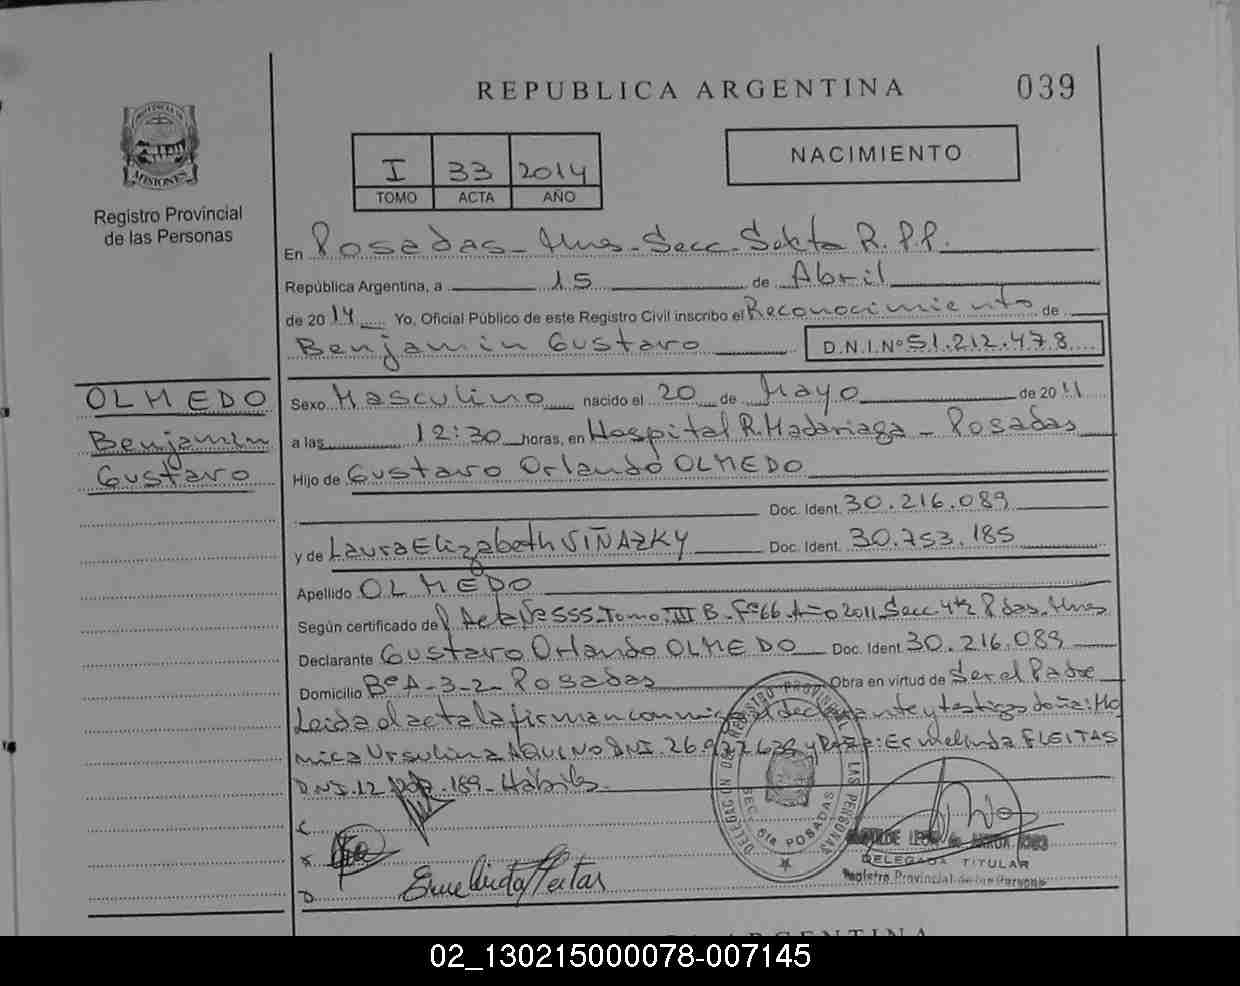 REPUBLICA ARGENTINA
039
PROVINCIA DE
MISIONES
Registro Provincial
de las Personas
I 33 2014
TOMO ACTA AÑO
NACIMIENTO
En Posadas - Mnes - Secc. Sexta R.P.P.
República Argentina, a 15 de Abril
de 2014 Yo, Oficial Público de este Registro Civil inscribo el Reconocimiento de
Benjamin Gustavo D.N.I.Nº 51.212.478
OLMEDO
Benjamin
Gustavo
Sexo Masculino nacido el 20 de Mayo de 2011
a las 12:30 horas, en Hospital R. Madariaga - Posadas
Hijo de Gustavo Orlando OLMEDO
Doc. Ident. 30.216.089
y de Laura Elizabeth VIÑAZKY Doc. Ident. 30.753.185
Apellido OLMEDO
Según certificado de Acta Nº 555 - Tomo: III B - Fº 66 - Año 2011 Secc. 4ta Pdas. Mnes
Declarante Gustavo Orlando OLMEDO Doc. Ident. 30.216.089
Domicilio Bº A-3-2- Posadas Obra en virtud de Ser el Padre
Leida el acta la firman conmigo el declarante y testigos doña: Mo
nica Ursulina AQUINO DNI. 26. y Ermelinda FLEITAS
D.N.I. 12. .189 - Hábiles
Ermelinda Fleitas
DELEGACION DEL REGISTRO PROVINCIAL DE LAS PERSONAS
SEC. 6ta POSADAS
DELEGADA TITULAR
Registro Provincial de las Personas
ARGENTINA
02_130215000078-007145